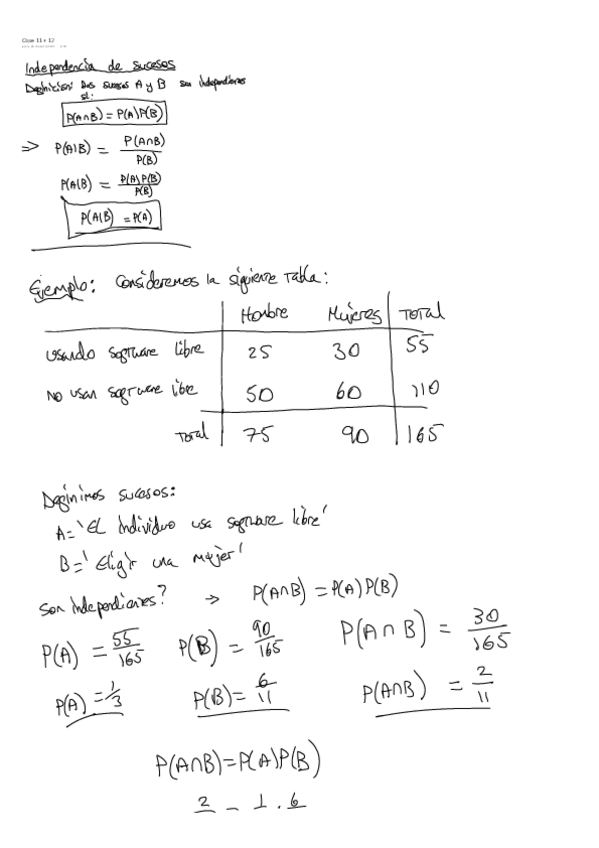 Clase 11 y 12
Independencia de sucesos
Definición: Dos sucesos A y B son independientes
si:
P(A∩B) = P(A)P(B)
=> P(A|B) = P(A∩B)/P(B)
P(A|B) = P(A)P(B)/P(B)
P(A|B) = P(A)
Ejemplo: Consideremos la siguiente tabla:
Hombre Mujeres Total
usando software libre 25 30 55
No usan software libre 50 60 110
Total 75 90 165
Definimos sucesos:
A = 'El individuo usa software libre'
B = 'Eligir una mujer'
son independientes? → P(A∩B) = P(A)P(B)
P(A) = 55/165 P(B) = 90/165 P(A∩B) = 30/165
P(A) = 1/3 P(B) = 6/11 P(A∩B) = 2/11
P(A∩B) = P(A)P(B)
2 = 1 · 6